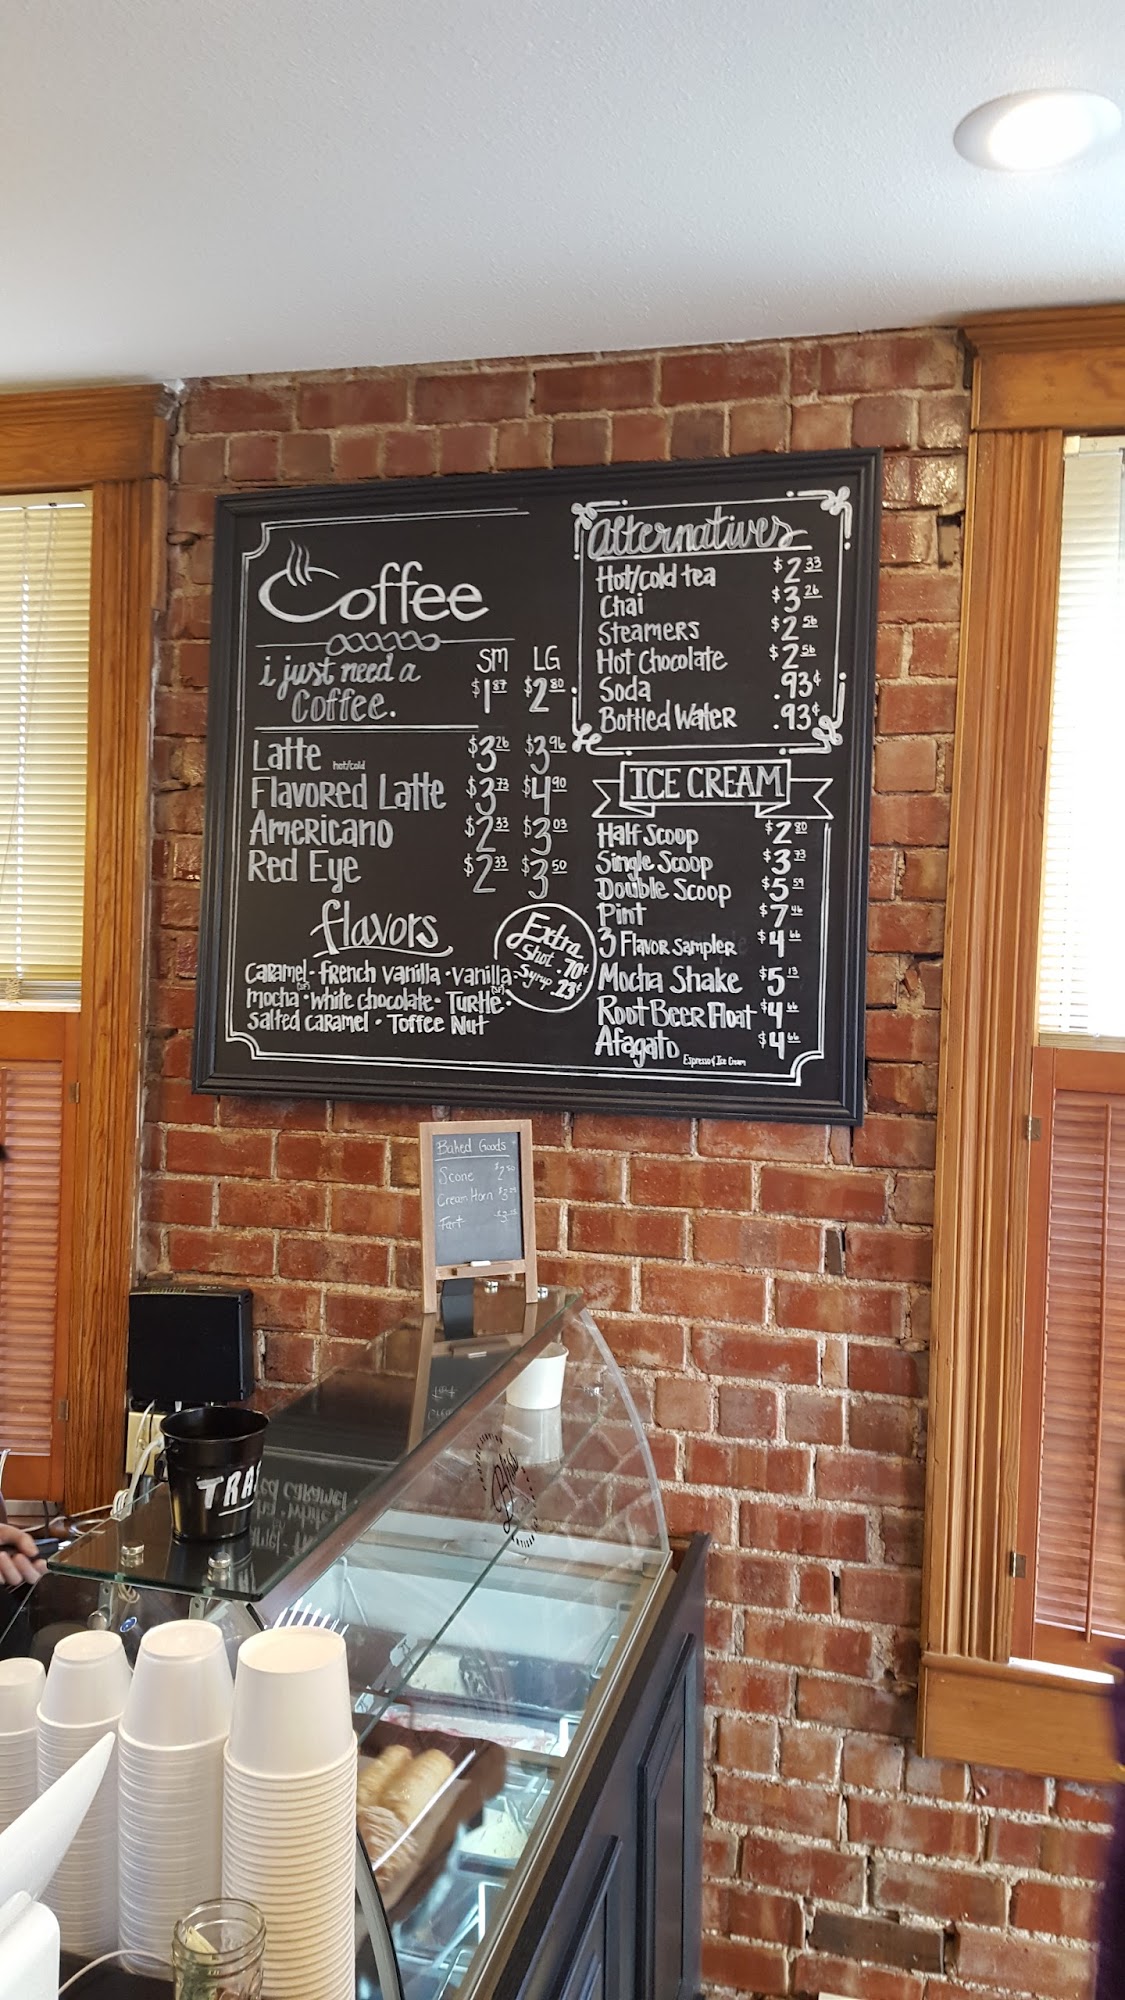 Coffee
SM LG
i just need a
Coffee. $1.87 $2.80
Latte hot/cold $3.26 $3.96
Flavored Latte $3.73 $4.90
Americano $2.33 $3.03
Red Eye $2.33 $3.50
flavors
Caramel - french vanilla - vanilla -
mocha - white chocolate - Turtle -
salted caramel - Toffee Nut
Extra
Shot .70¢
Syrup .23¢
alternatives
Hot/cold tea $2.33
Chai $3.26
Steamers $2.56
Hot Chocolate $2.56
Soda .93¢
Bottled Water .93¢
ICE CREAM
Half Scoop $2.80
Single Scoop $3.73
Double Scoop $5.59
Pint $7.46
3 Flavor Sampler $4.66
Mocha Shake $5.13
Root Beer Float $4.66
Afagato Espresso & Ice Cream $4.66
Baked Goods
Scone $2.50
Cream Horn
Tart
TRA
Bliss